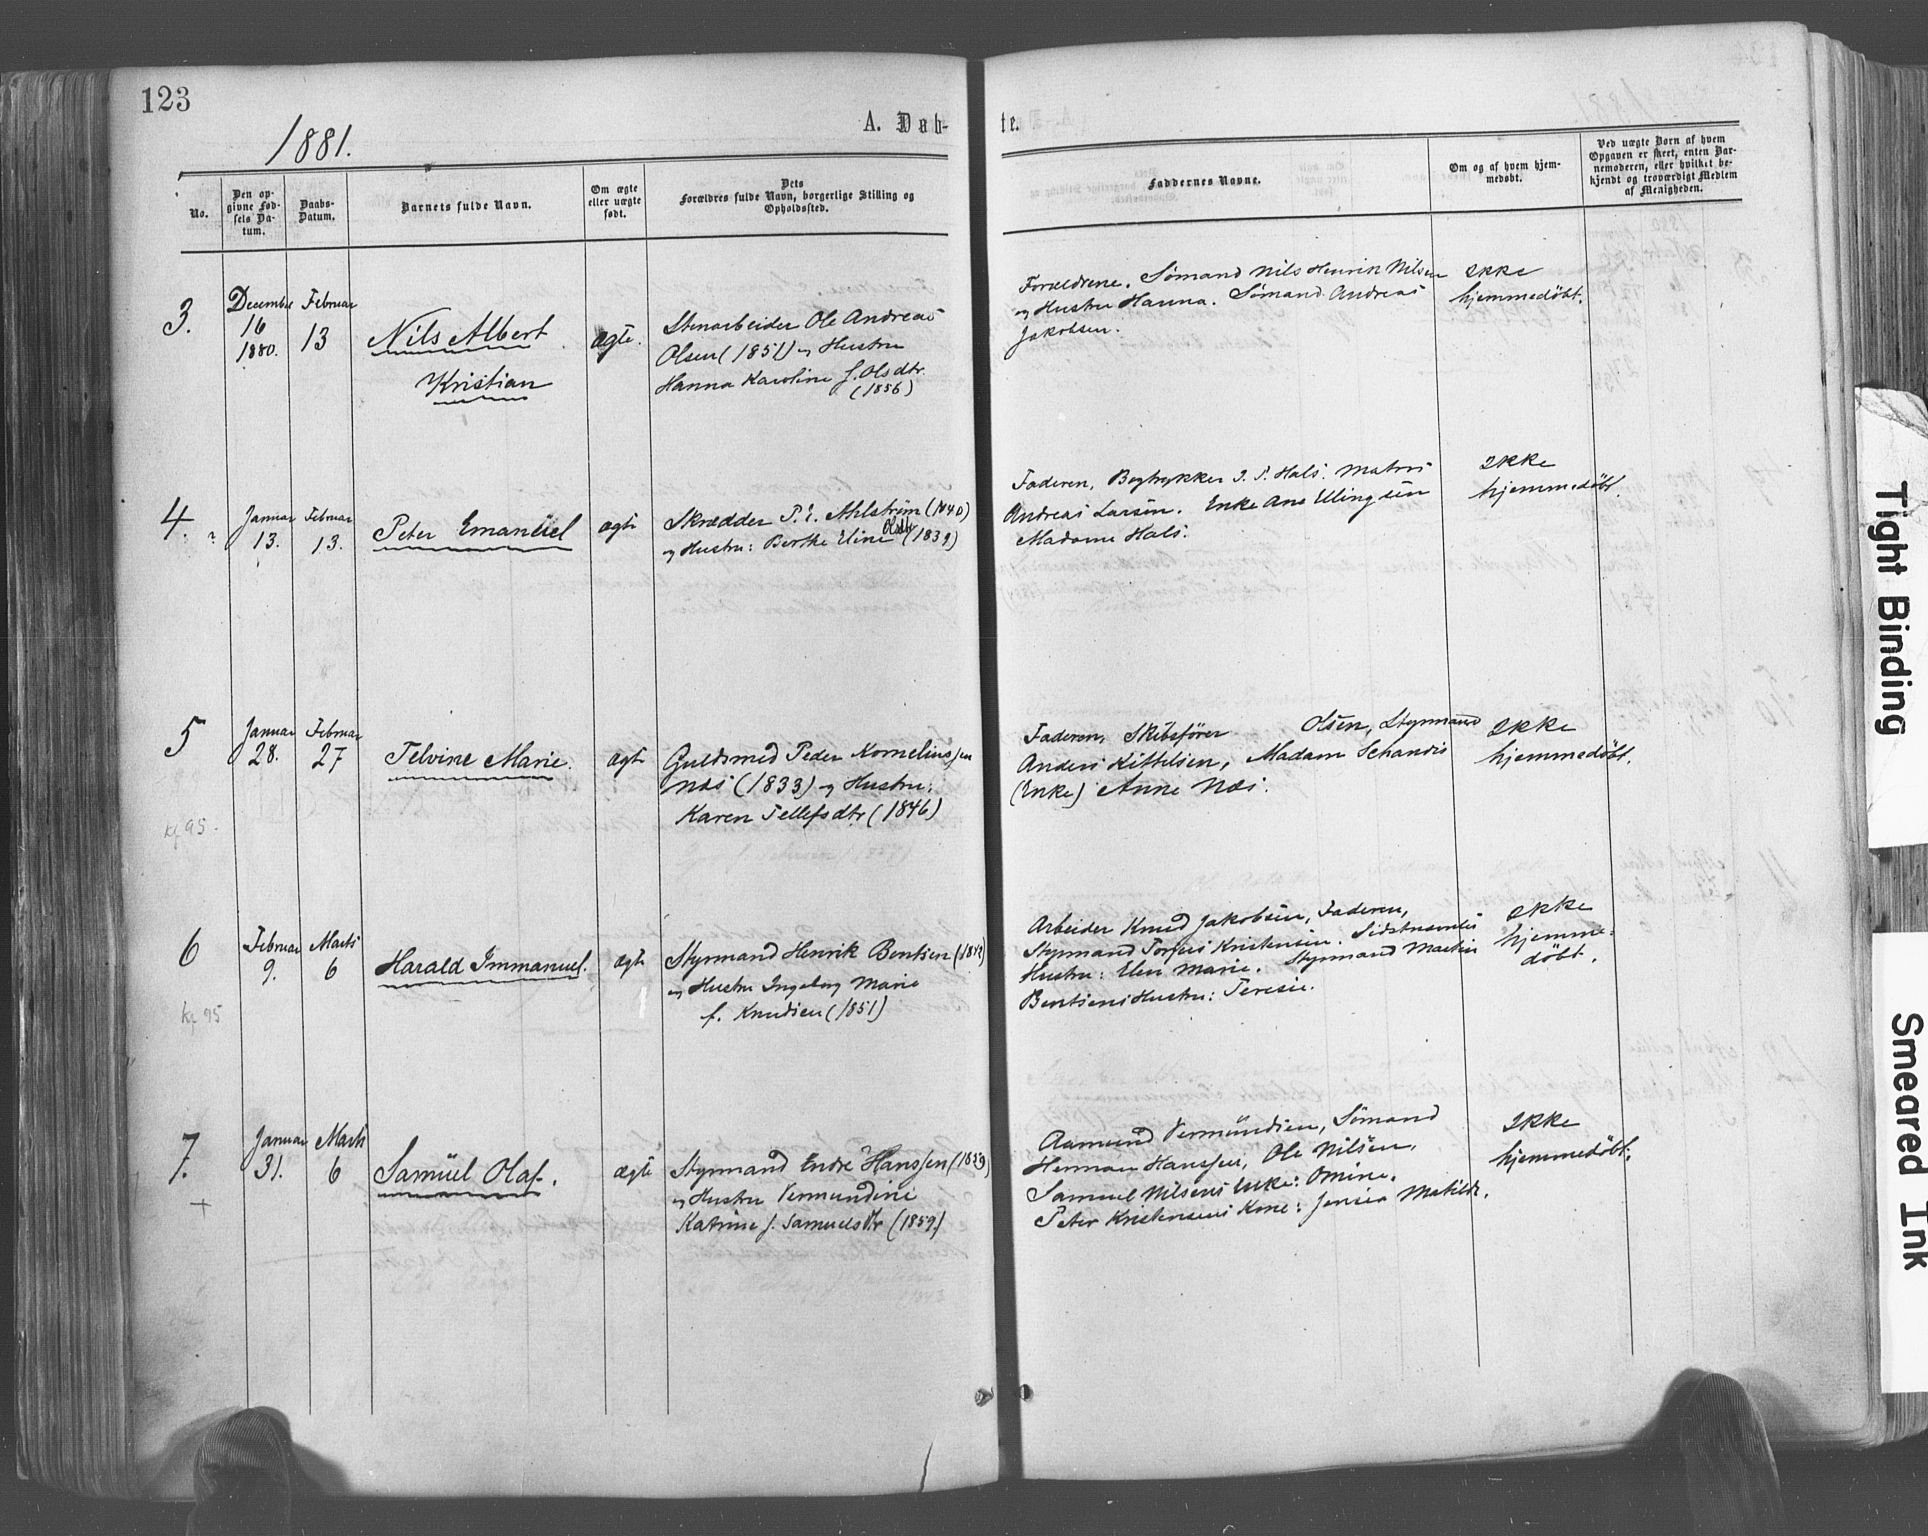 123
1881.
A. Døb-
te.
No.
Den op-
givne Fød-
sels Da-
tum.
Daabs-
Datum.
Barnets fulde Navn.
Om ægte
eller uægte
født.
Dets
Forældres fulde Navn, borgerlige Stilling og
Opholdssted.
Faddernes Navne.
Om og af hvem hjem-
medøbt.
Ved uægte Børn af hvem
Opgaven er skeet, enten Bar-
nemoderen, eller hvilket be-
kjendt og troværdigt Medlem
af Menigheden.
3.
December
16
1880.
Februar
13
Nils Albert
Kristian
ægte.
Stenarbeider Ole Andreas
Olsen (1851) og Hustru
Hanna Karoline f. Olsdtr.
(1856)
Forældrene. Sømand Nils Henrik Nilsen
og Hustru Hanna. Sømand Andreas
Jakobsen.
Ikke
hjemmedøbt.
4.
Januar
13.
Februar
13.
Peter Emanuel
ægte
Skrædder P. E. Ahlstrøm (1840)
og Hustru: Berthe Eline Olsdtr (1839)
Faderen, Bogtrykker J. P. Hals. Matros
Andreas Larsen. Enke Ane Ellingsen
Madame Hals.
Ikke
hjemmedøbt.
5
Januar
28.
Februar
27
Telvine Marie.
ægte
Guldsmed Peder Korneliussen
Næs (1833) og Hustru:
Karen Tellefsdtr (1846)
Faderen, Skibsfører Olsen, Styrmand
Anders Kittilsen, Madam Schandis
(Enke) Anne Næs.
Ikke
hjemmedøbt.
kf 95.
6
Februar
9.
Marts
6
Harald Immanuel.
ægte
Styrmand Henrik Bentsen (1849)
og Hustru Ingeborg Marie
f. Knudsen (1851)
Arbeider Knud Jakobsen, Faderen,
Styrmand Torjus Kristensen. Sidstnævntes
Hustru: Elen Marie. Styrmand Martin
Bentsens Hustru: Teresie.
Ikke
hjemme-
døbt.
kf 95
7.
Januar
31.
Marts
6
Samuel Olaf.
ægte
Styrmand Endre Hanssen (1853)
og Hustru Vermundine
Katrine f. Samuelsdtr (1859)
Aamund Vermundsen, Sømand
Herman Hanssen, Ole Nilsen,
Samuel Nilsens Enke: Omine.
Peter Kristensens Kone: Jensea Matilde.
Ikke
hjemmedøbt.
Tight Binding
Smeared Ink